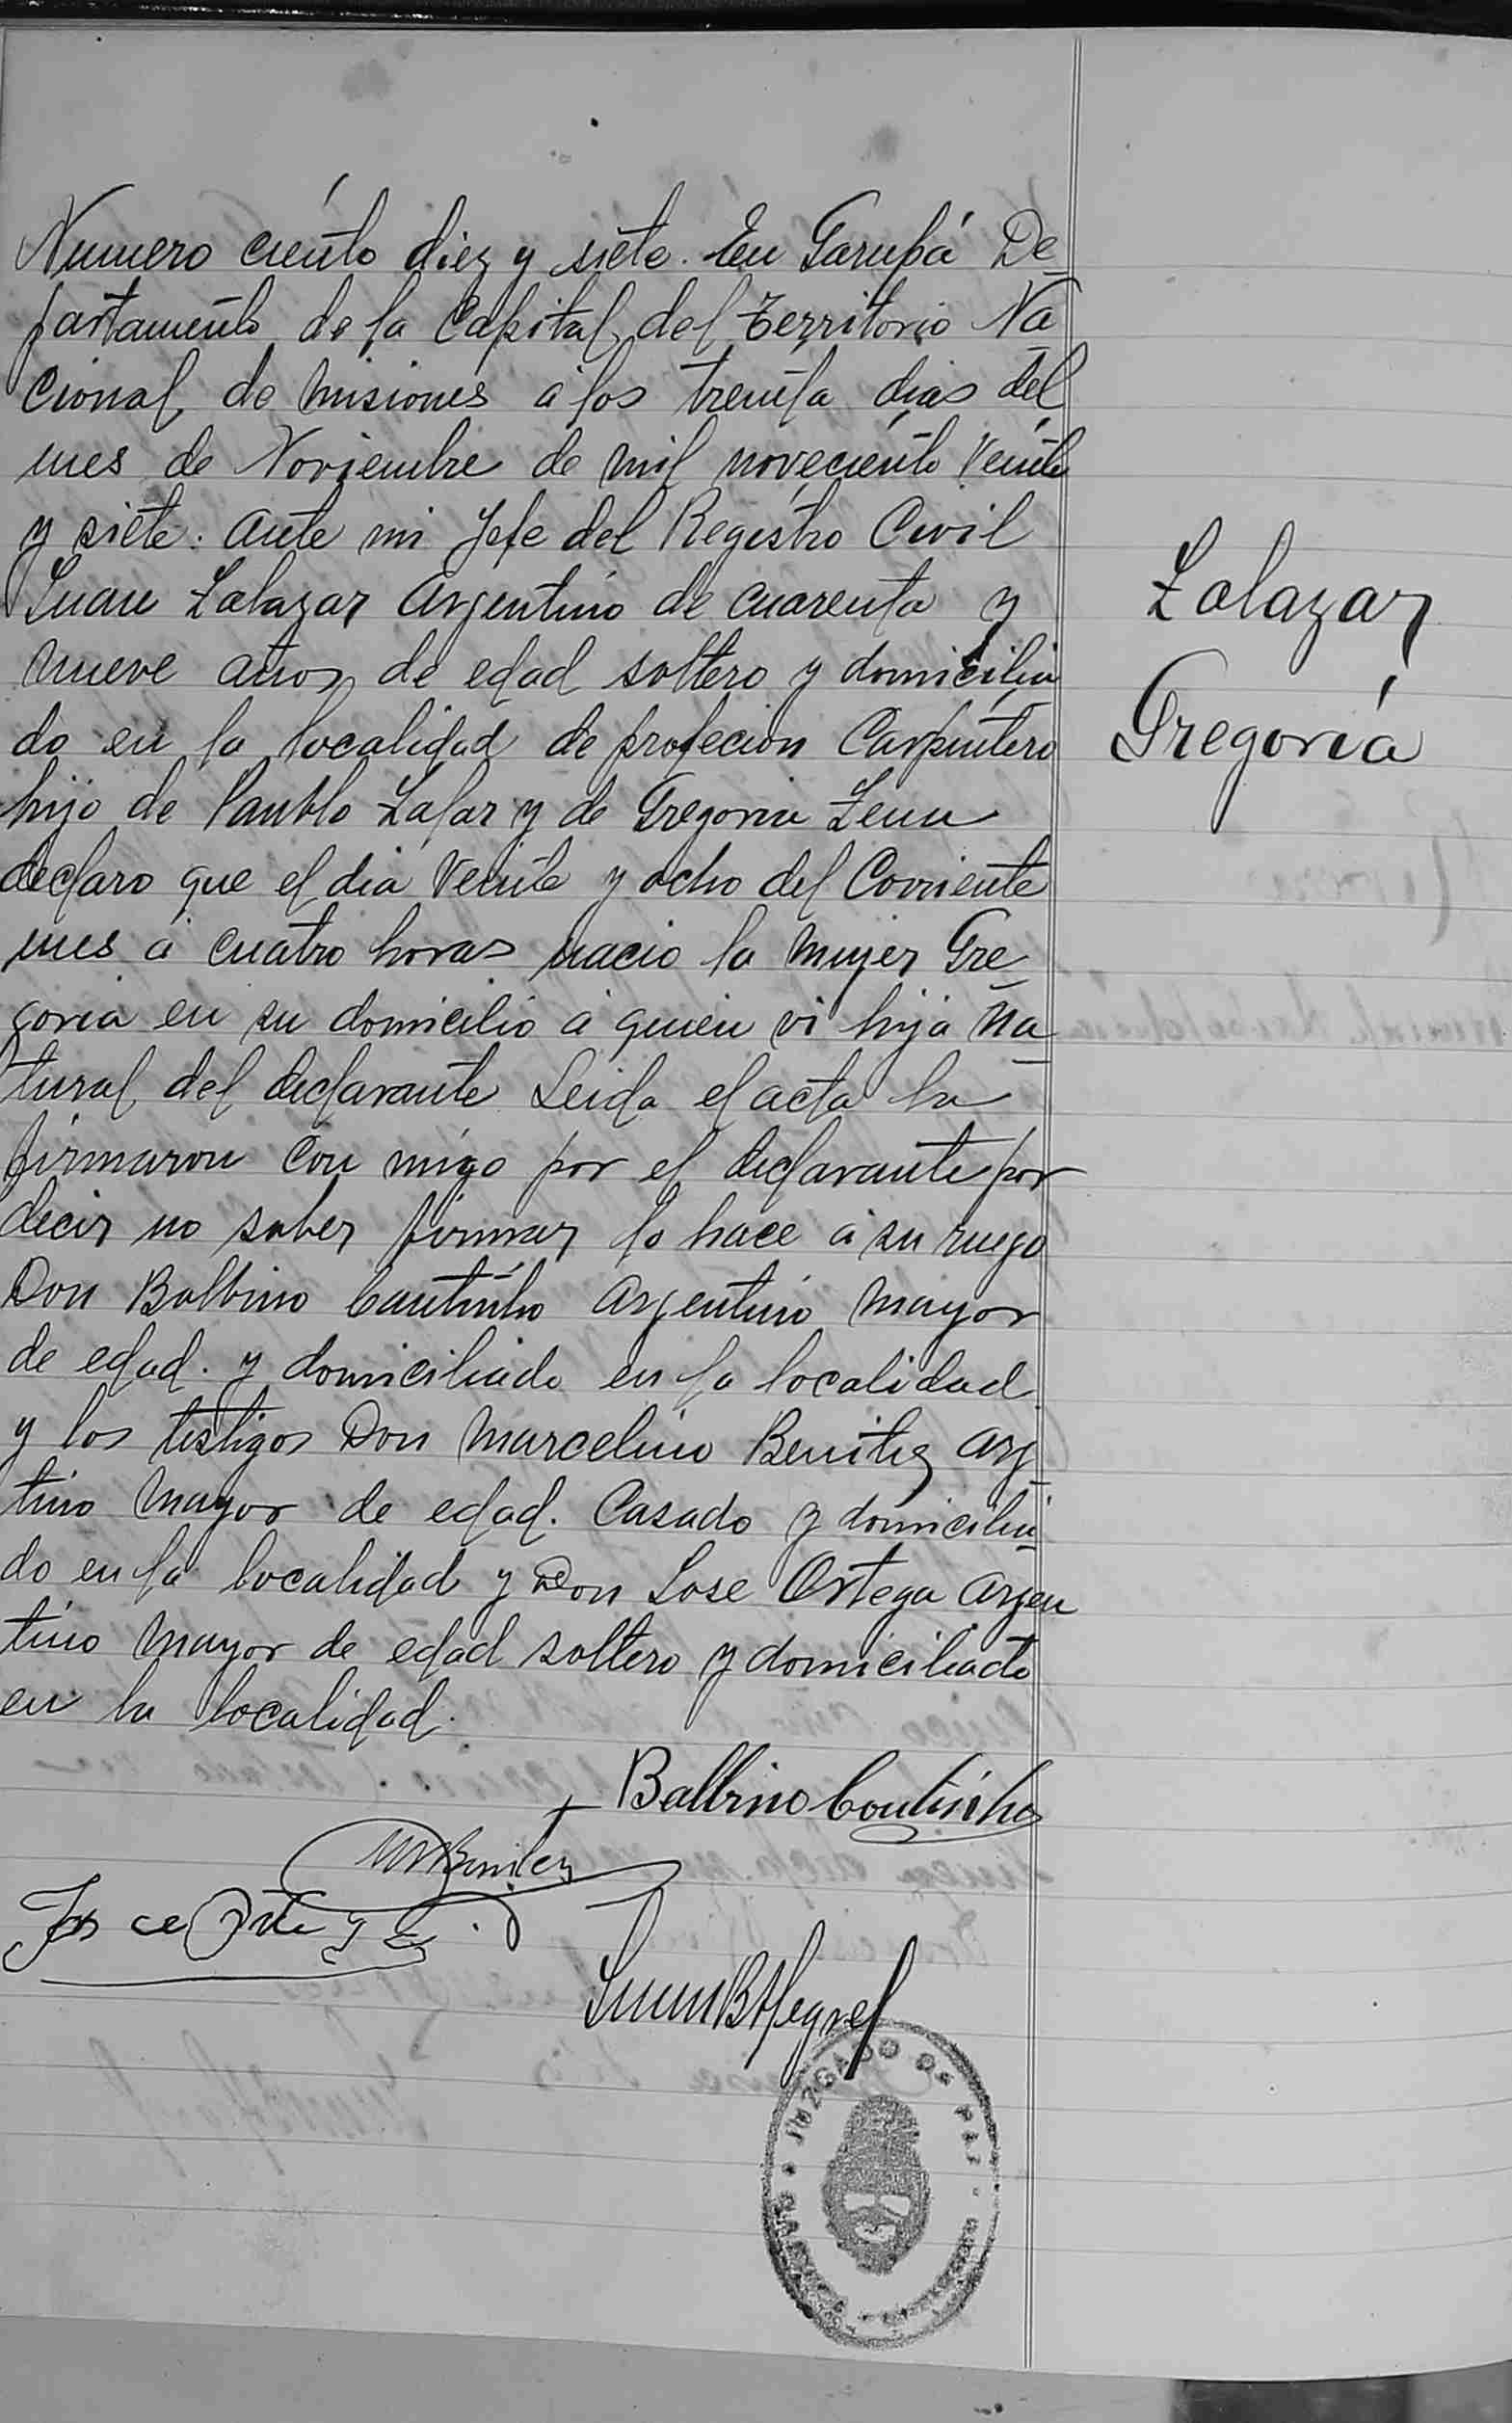 Numero ciento diez y siete. En Garupá De
partamento de la Capital del Territorio Na
cional de Misiones a los treinta dias del
mes de Noviembre de mil noveciento Veinte
y siete. Ante mi Jefe del Registro Civil
Juan Zalazar Argentino de cuarenta y
nueve años de edad soltero y domicilia
do en la localidad de profecion Carpintero
hijo de Paublo Zalar y de Gregoria
declaro que el dia Veinte y ocho del Corriente
mes a cuatro horas nacio la mujer Gre
goria en su domicilio a quien vi hija na
tural del declarante Leida el acta la
firmaron con migo por el declarante por
decir no saber firmar lo hace a su ruego
Don Balbino Coutinho Argentino mayor
de edad. y domiciliado en la localidad
y los testigos Don Marcelino Benitez Arg
tino Mayor de edad. Casado y domicilia
do en la localidad y Don Jose Ortega Argen
tino Mayor de edad soltero y domiciliado
en la localidad.
Zalazar
Gregoria
Balbino Coutinho
MBenitez
Jose Ortega
JUZGADO DE PAZ